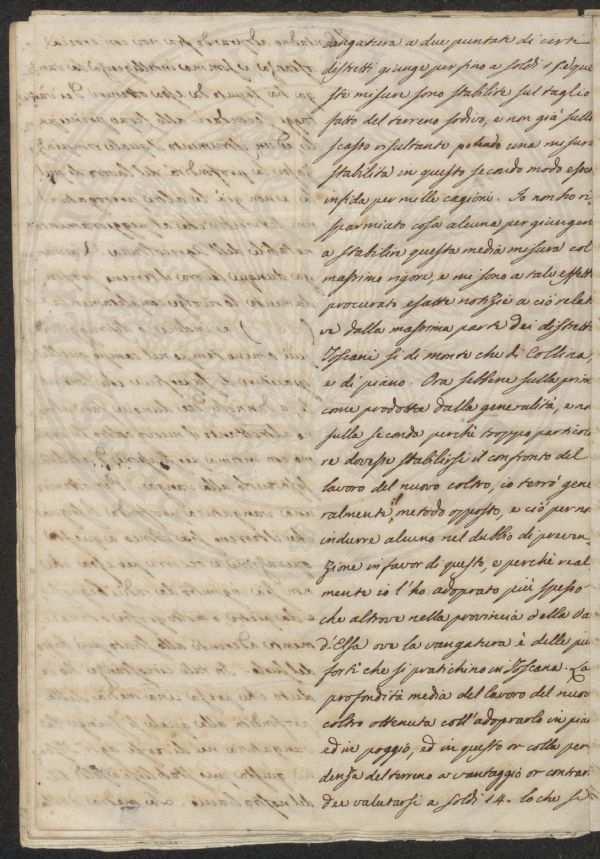 vangatura a due puntate di certi
distretti giunge per fino a soldi 18 que
ste misure sono stabilite sul taglio
fatto del terreno sodivo, e non già sullo
scasso risultante potendo una misura
stabilita in questo secondo modo esser
infida per mille cagioni. Io non ho ri
sparmiato cosa alcuna per giungere
a stabilire questa media misura col
massimo rigore, e mi sono a tale effetto
procurato esatte notizie a ciò relati
ve dalla massima parte dei distretti
Toscani si di monte che di Collina,
e di piano. Ora sebbene sulla prim
come prodotta dalla generalità, e non
sulla seconda perchè troppo particola
re dovesse stabilirsi il confronto del
lavoro del nuovo coltro, io terrò gene
ralmente il metodo opposto, e ciò per no
indurre alcuno nel dubbio di preven
zione in favor di questo, e perchè real
mente io l'ho adoprato più spesso
che altrove nella provincia della Va
d'Elsa ove la vangatura è delle piu
forti che si pratichino in Toscana. La
profondità media del lavoro del nuovo
coltro ottenuta coll'adoprarlo in pian
ed in poggio, ed in questo or colla pen
denza del terreno a vantaggio or contrar
dee valutarsi a soldi 14. lo che si